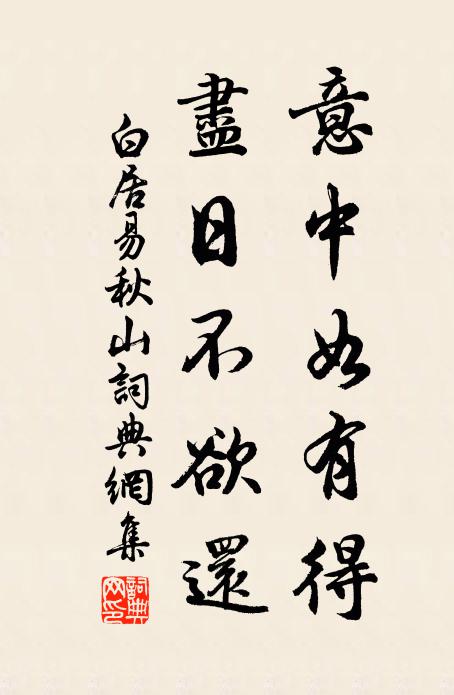 意中如有得
盡日不欲還
白居易秋山詞典網集
詞典網印